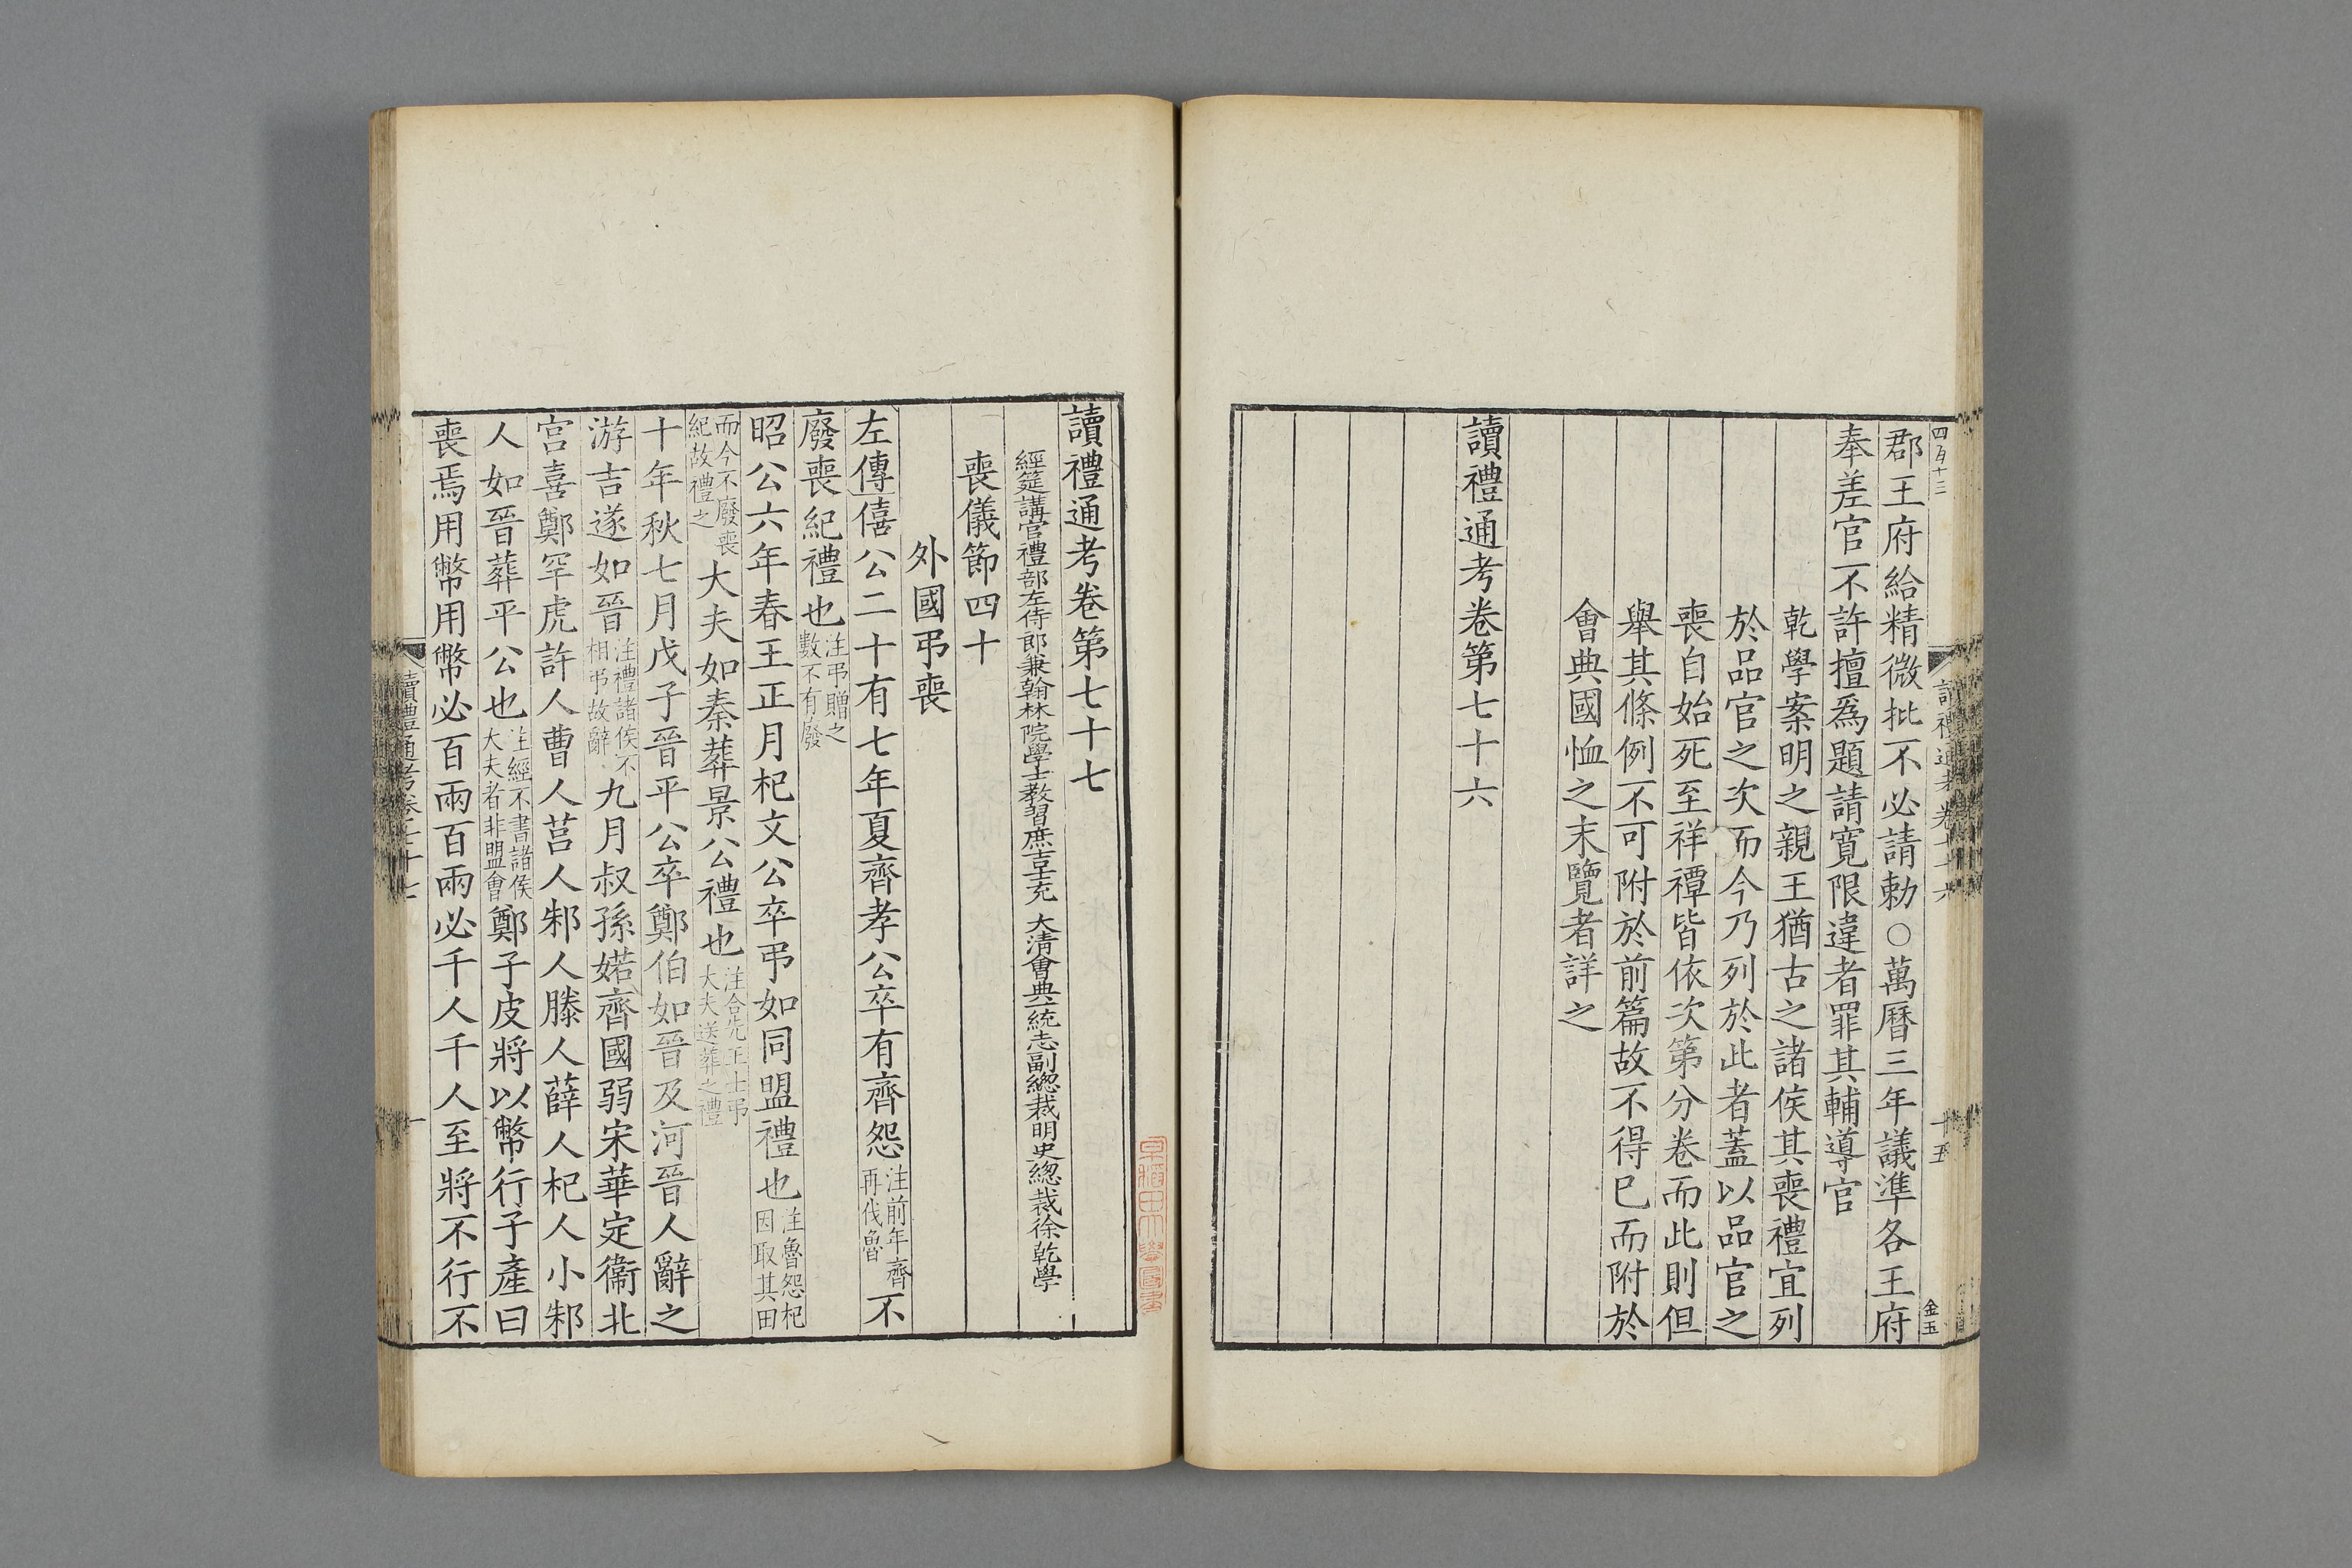 郡王府給精微批不必請勅○萬曆三年議準各王府
奉差官不許擅爲題請寬限違者罪其輔導官
乾學案明之親王猶古之諸侯其喪禮宜列
於品官之次而今乃列於此者蓋以品官之
喪自始死至祥禫皆依次第分卷而此則但
舉其條例不可附於前篇故不得已而附於
會典國恤之末覽者詳之
讀禮通考卷第七十六
十五
金玉
讀禮通考卷第七十七
經筵講官禮部左侍郎兼翰林院學士教習庶吉士充 大清會典一統志副總裁明史總裁徐乾學
喪儀節四十
外國弔喪
左傳僖公二十有七年夏齊孝公卒有齊怨注前年齊再伐魯不
廢喪紀禮也注弔贈之數不有廢
昭公六年春王正月杞文公卒弔如同盟禮也注魯怨杞因取其田
而今不廢喪紀故禮之大夫如秦葬景公禮也注合先王士弔大夫送葬之禮
十年秋七月戊子晉平公卒鄭伯如晉及河晉人辭之
游吉遂如晉注禮諸侯不相弔故辭九月叔孫婼齊國弱宋華定衞北
宮喜鄭罕虎許人曹人莒人邾人滕人薛人杞人小邾
人如晉葬平公也注經不書諸侯大夫者非盟會鄭子皮將以幣行子產曰
喪焉用幣用幣必百兩百兩必千人千人至將不行不
讀禮通考卷七十七
一
早稲田大學圖書